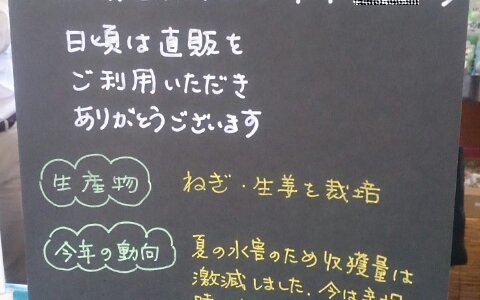 日頃は直販を
ご利用いただき
ありがとうございます
生産物 ねぎ・生姜を栽培
今年の動向 夏の水害のため収獲量は
激減しました。今は